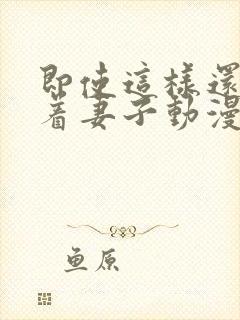 即使這樣還
着妻子動漫
鱼原